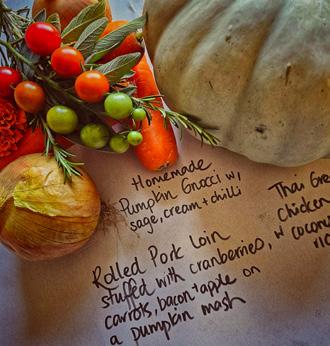 Homemade
Pumpkin Gnocci w/
sage, cream + chilli
Rolled Pork Loin
stuffed with cranberries,
carrots, bacon + apple on
a pumpkin mash
Thai Gre
Chicken
w coconu